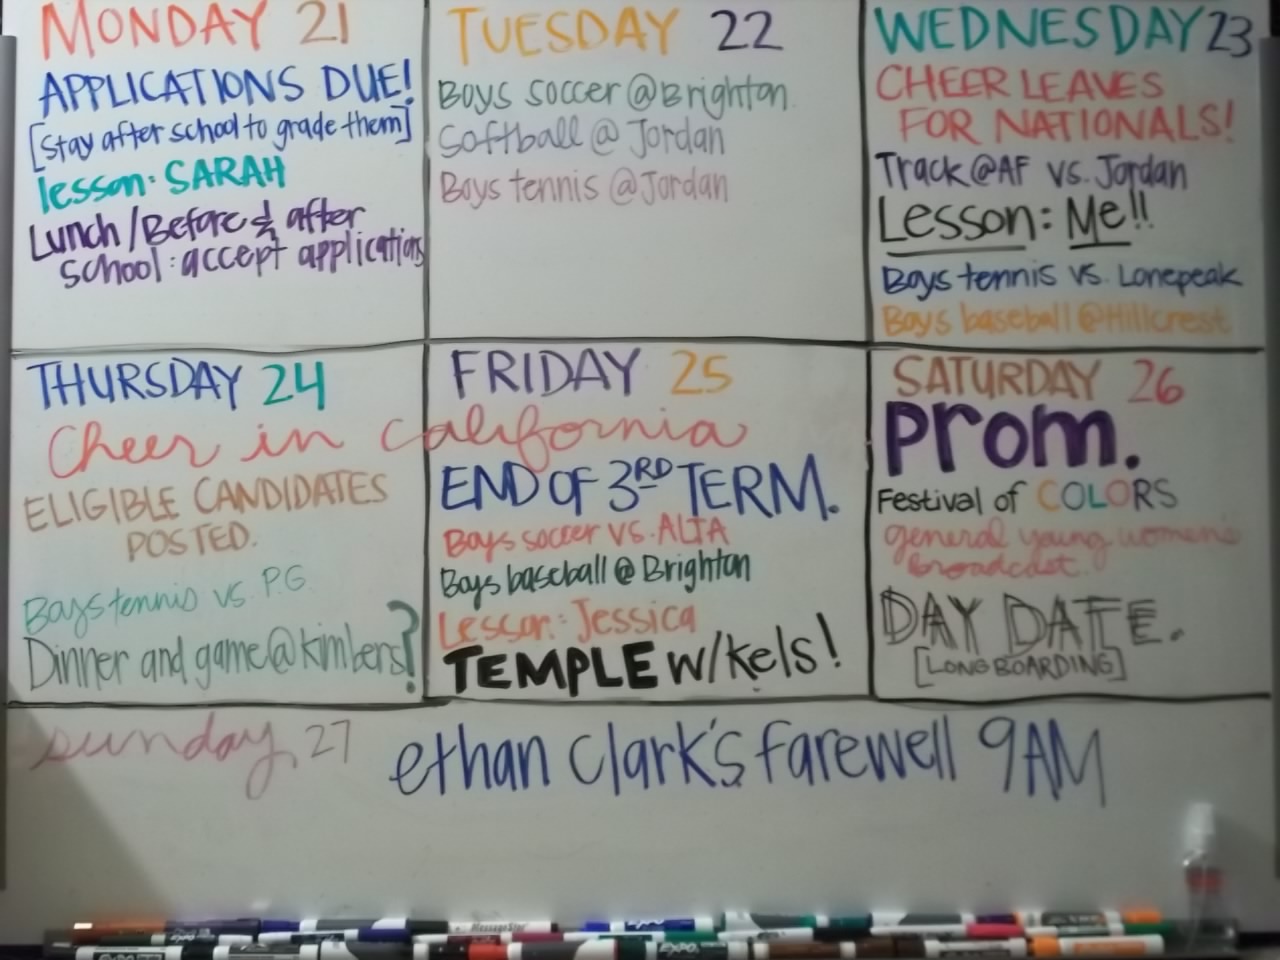 MONDAY 21
APPLICATIONS DUE!
[Stay after school to grade them]
lesson: SARAH
Lunch/Before & after
school: accept applications
TUESDAY 22
Boys soccer @ Brighton
Softball @ Jordan
Boys tennis @ Jordan
WEDNESDAY 23
CHEER LEAVES
FOR NATIONALS!
Track @ AF vs. Jordan
Lesson: Me!!
Boys tennis vs. Lonepeak
Boys baseball @ Hillcrest
THURSDAY 24
Cheer in California
ELIGIBLE CANDIDATES
POSTED.
Boys tennis vs. P.G.
Dinner and game @ kimbers?
FRIDAY 25
END OF 3RD TERM.
Boys soccer vs. ALTA
Boys baseball @ Brighton
Lesson: Jessica
TEMPLE w/kels!
SATURDAY 26
Prom.
Festival of COLORS
general young women's
broadcast.
DAY DATE.
[LONGBOARDING]
sunday 27
ethan clark's farewell 9AM
EXPO
EXPO